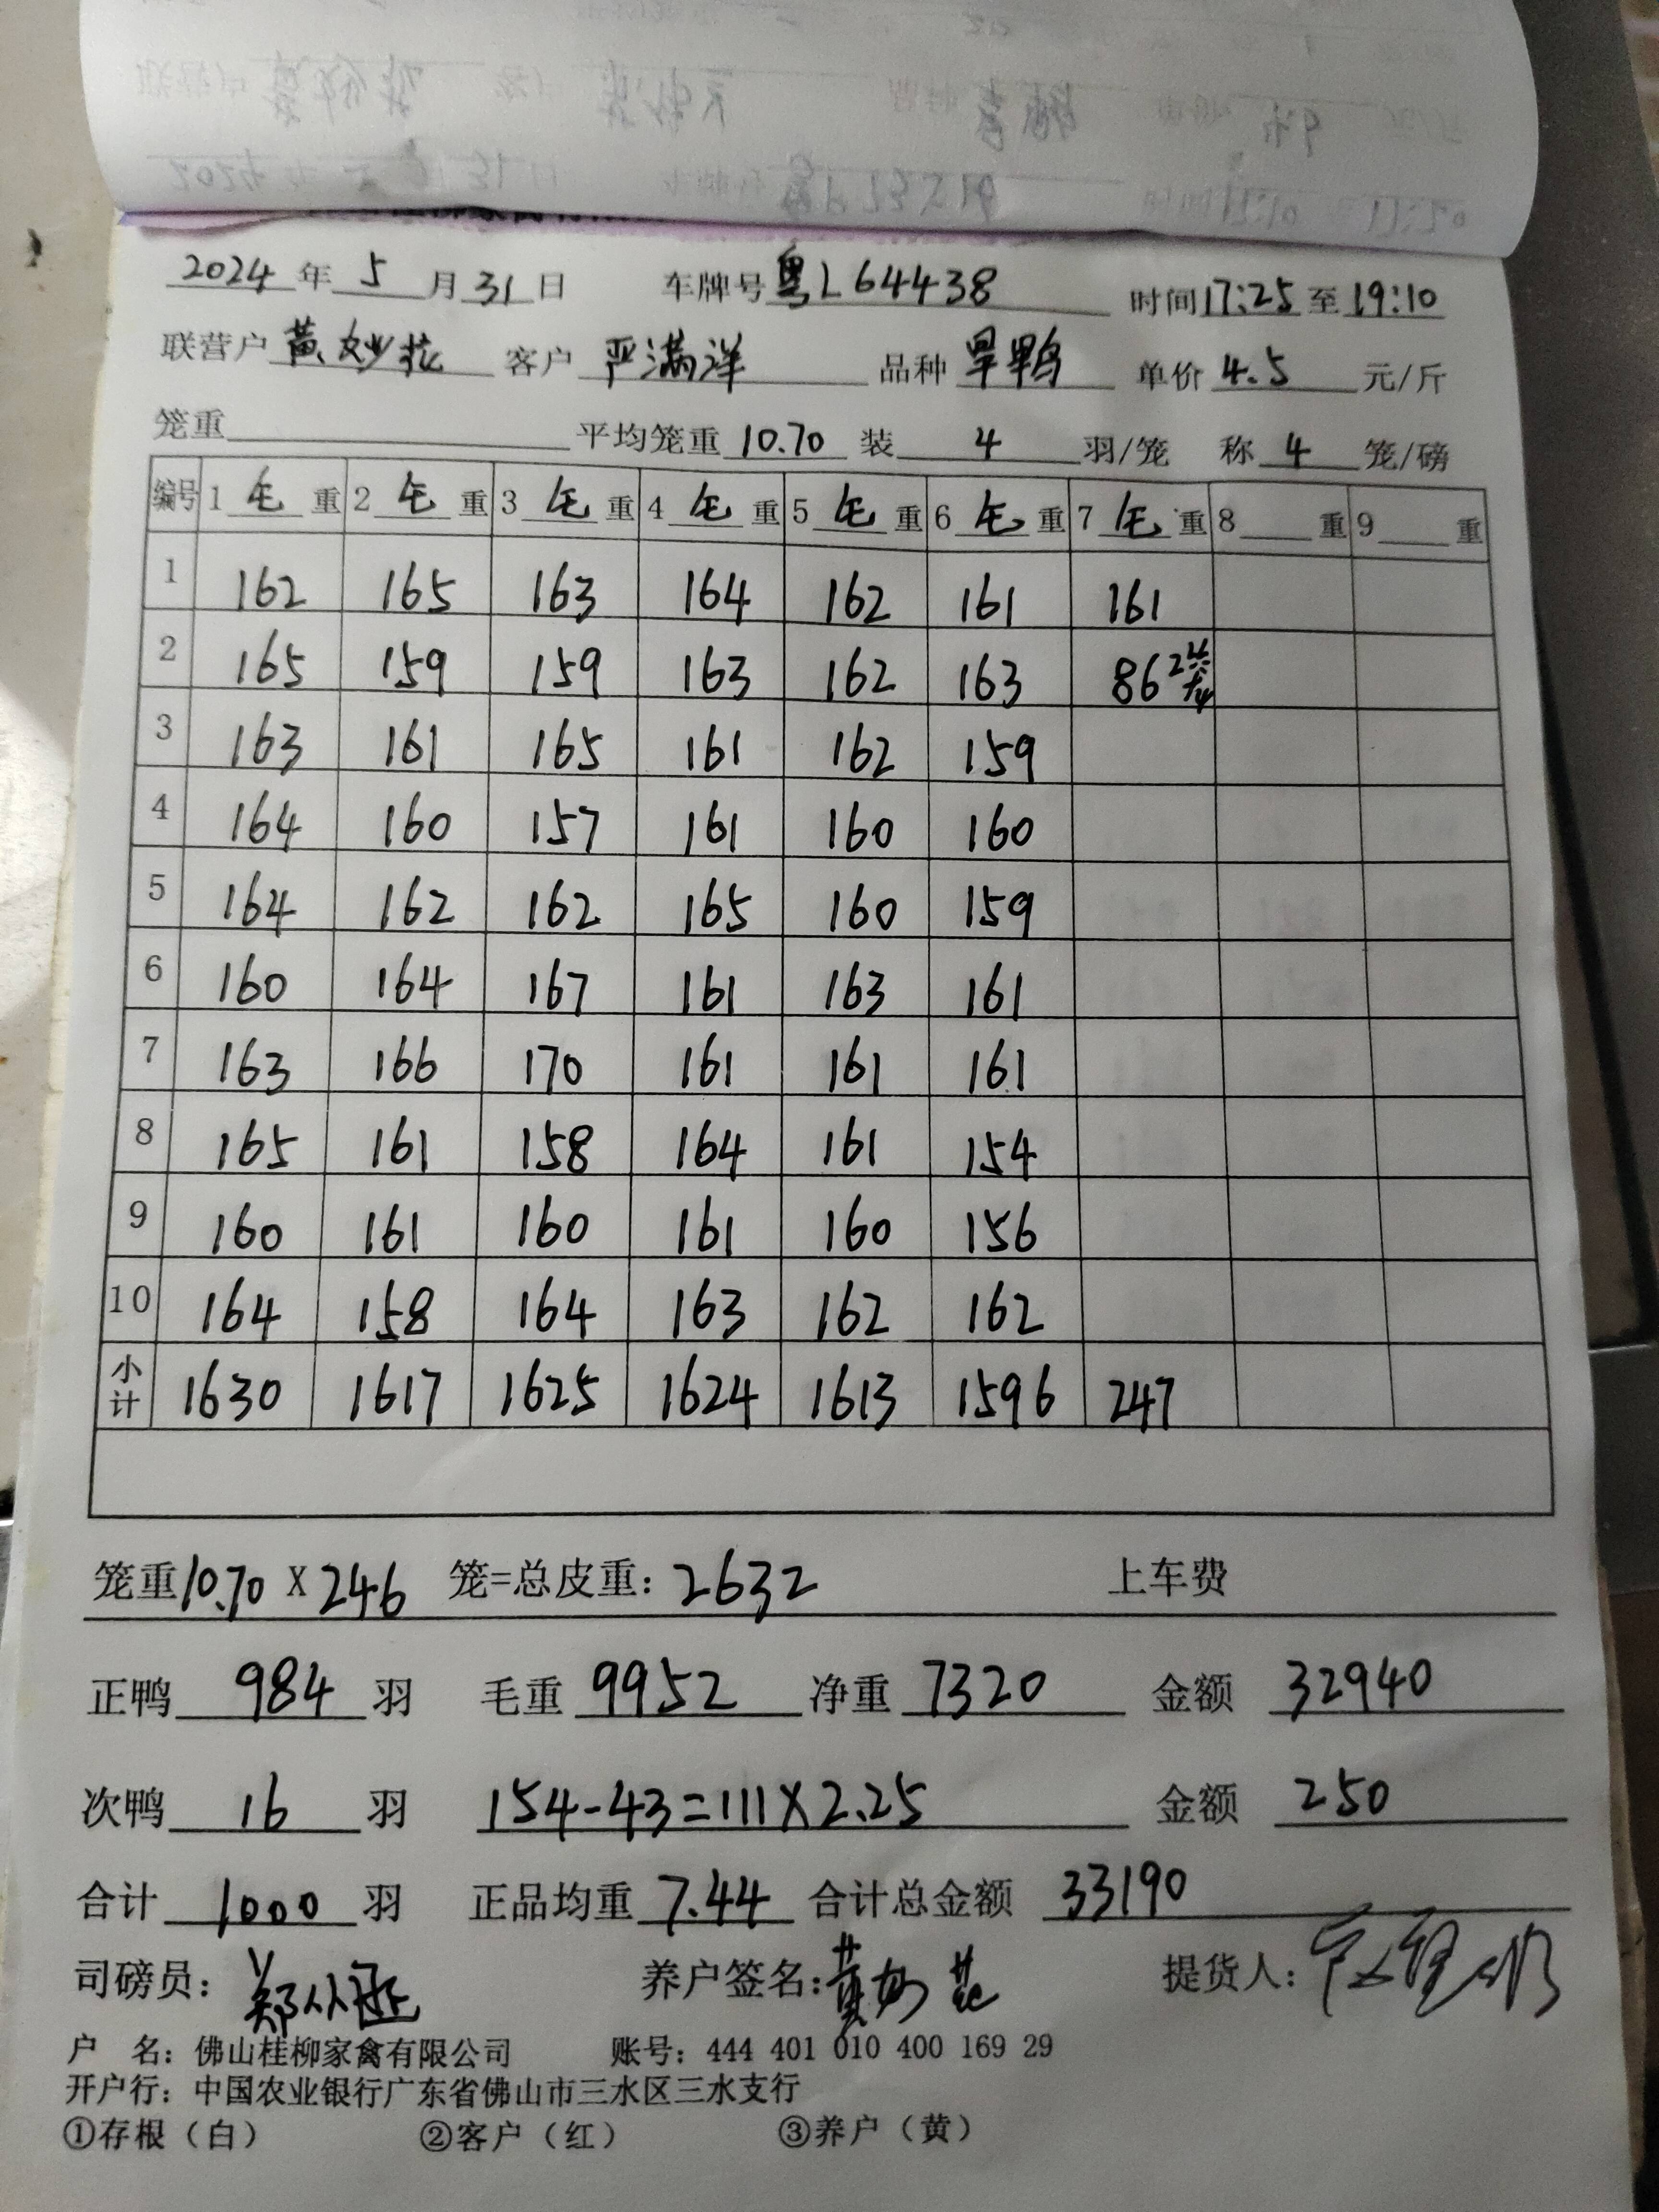 2024 年 5 月 31 日 车牌号 粤L64438 时间 17:25 至 19:10
联营户 黄妙花 客户 严满洋 品种 旱鸭 单价 4.5 元/斤
笼重 平均笼重 10.70 装 4 羽/笼 称 4 笼/磅
编号 1 毛 重 2 毛 重 3 毛 重 4 毛 重 5 毛 重 6 毛 重 7 毛 重 8 重 9 重
1 162 165 163 164 162 161 161
2 165 159 159 163 162 163 86 2笼
3 163 161 165 161 162 159
4 164 160 157 161 160 160
5 164 162 162 165 160 159
6 160 164 167 161 163 161
7 163 166 170 161 161 161
8 165 161 158 164 161 154
9 160 161 160 161 160 156
10 164 158 164 163 162 162
小计 1630 1617 1625 1624 1613 1596 247
笼重 10.70 X 246 笼=总皮重: 2632 上车费
正鸭 984 羽 毛重 9952 净重 7320 金额 32940
次鸭 16 羽 154-43=111X2.25 金额 250
合计 1000 羽 正品均重 7.44 合计总金额 33190
司磅员: 郑 养户签名: 黄妙花 提货人:
户 名: 佛山桂柳家禽有限公司 账号: 444 401 010 400 169 29
开户行: 中国农业银行广东省佛山市三水区三水支行
①存根（白） ②客户（红） ③养户（黄）